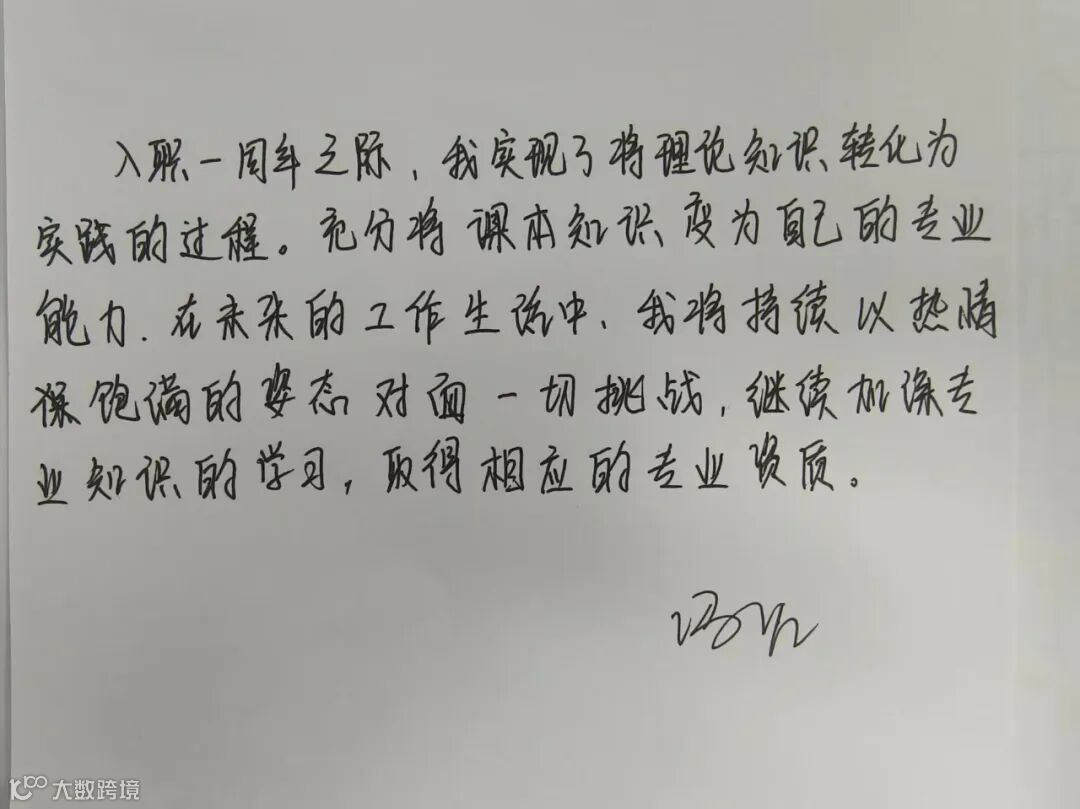 入职一周年之际，我实现了将理论知识转化为
实践的过程。充分将课本知识变为自己的专业
能力.在未来的工作生活中、我将持续以热情
保饱满的姿态对面一切挑战，继续加深专
业知识的学习，取得相应的专业资质。
大数跨境